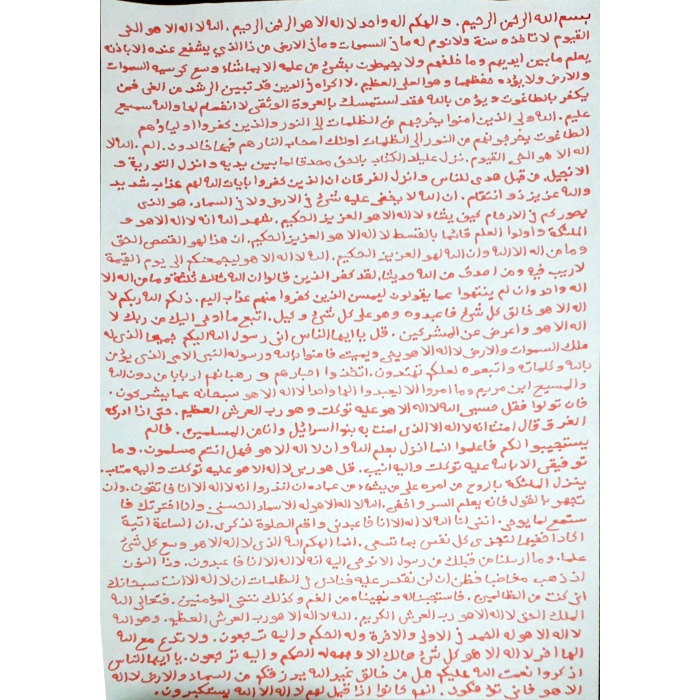 بسم الله الرحمن الرحيم . و الهكم اله واحد لا اله الا هو الرحمن الرحيم . الله لا اله الا هو الحى
القيوم لا تاخذه سنة ولا نوم له ما فى السموات وما فى الارض من ذا الذي يشفع عنده الا باذنه
يعلم ما بين ايديهم و ما خلفهم ولا يحيطون بشئ من علمه الا بما شاء وسع كرسيه السموات
والارض ولا يؤده حفظهما وهو العلى العظيم . لا اكراه فى الدين قد تبين الرشد من الغى فمن
يكفر بالطاغوت و يؤمن بالله فقد استمسك بالعروة الوثقى لا انفصام لها والله سميع
عليم . الله ولى الذين امنوا يخرجهم من الظلمات الى النور والذين كفروا اولياؤهم
الطاغوت يخرجونهم من النور الى الظلمات اولئك اصحاب النار هم فيها خالدون . الم . الله لا
اله الا هو الحى القيوم . نزل عليك الكتاب بالحق مصدقا لما بين يديه و انزل التورية و
الانجيل . من قبل هدى للناس و انزل الفرقان ان الذين كفروا بايات الله لهم عذاب شديد
والله عزيز ذو انتقام . ان الله لا يخفى عليه شئ فى الارض ولا فى السماء . هو الذى
يصوركم فى الارحام كيف يشاء لا اله الا هو العزيز الحكيم . شهد الله انه لا اله الا هو و
الملئكة و اولوا العلم قائما بالقسط لا اله الا هو العزيز الحكيم . ان هذا لهو القصص الحق
و ما من اله الا الله و ان الله لهو العزيز الحكيم . الله لا اله الا هو ليجمعنكم الى يوم القيمة
لا ريب فيه و من اصدق من الله حديثا . لقد كفر الذين قالوا ان الله ثالث ثلثة و ما من اله الا
اله واحد وان لم ينتهوا عما يقولون ليمسن الذين كفروا منهم عذاب اليم . ذلكم الله ربكم لا
اله الا هو خالق كل شئ فاعبدوه وهو على كل شئ وكيل . اتبع ما اوحى اليك من ربك لا
اله الا هو و اعرض عن المشركين . قل يا ايها الناس انى رسول الله اليكم جميعا الذى له
ملك السموات والارض لا اله الا هو يحى ويميت فامنوا بالله ورسوله النبى الامى الذى يؤمن
بالله و كلماته و اتبعوه لعلكم تهتدون . اتخذوا احبارهم و رهبانهم اربابا من دون الله
و المسيح ابن مريم وما امروا الا ليعبدوا الها واحدا لا اله الا هو سبحانه عما يشركون .
فان تولوا فقل حسبى الله لا اله الا هو عليه توكلت و هو رب العرش العظيم . حتى اذا ادركه
الغرق قال امنت انه لا اله الا الذى امنت به بنوا اسرائيل وانا من المسلمين . فالم
يستجيبوا لكم فاعلموا انما انزل بعلم الله و ان لا اله الا هو فهل انتم مسلمون . و ما
توفيقى الا بالله عليه توكلت و اليه انيب . قل هو ربى لا اله الا هو عليه توكلت و اليه متاب .
ينزل الملئكة بالروح من امره على من يشاء من عباده ان انذروا انه لا اله الا انا فاتقون . وان
تجهر بالقول فانه يعلم السر و اخفى . الله لا اله الا هو له الاسماء الحسنى . وانا اخترتك فا
ستمع لما يوحى . اننى انا الله لا اله الا انا فاعبدنى و اقم الصلوة لذكرى . ان الساعة اتية
اكاد اخفيها لتجزى كل نفس بما تسعى . انما الهكم الله الذى لا اله الا هو وسع كل شئ
علما . و ما ارسلنا من قبلك من رسول الا نوحى اليه انه لا اله الا انا فاعبدون . وذا النون
اذ ذهب مغاضبا فظن ان لن نقدر عليه فنادى فى الظلمات ان لا اله الا انت سبحانك
انى كنت من الظالمين . فاستجبنا له و نجيناه من الغم و كذلك ننجى المؤمنين . فتعالى الله
الملك الحق لا اله الا هو رب العرش الكريم . الله لا اله الا هو رب العرش العظيم . وهو الله
لا اله الا هو له الحمد فى الاولى والاخرة وله الحكم و اليه ترجعون . ولا تدع مع الله
الها اخر لا اله الا هو كل شئ هالك الا وجهه له الحكم و اليه ترجعون . يا ايها الناس
اذكروا نعمت الله عليكم هل من خالق غير الله يرزقكم من السماء والارض لا اله
الا هو فانى تؤفكون . انهم كانوا اذا قيل لهم لا اله الا الله يستكبرون .